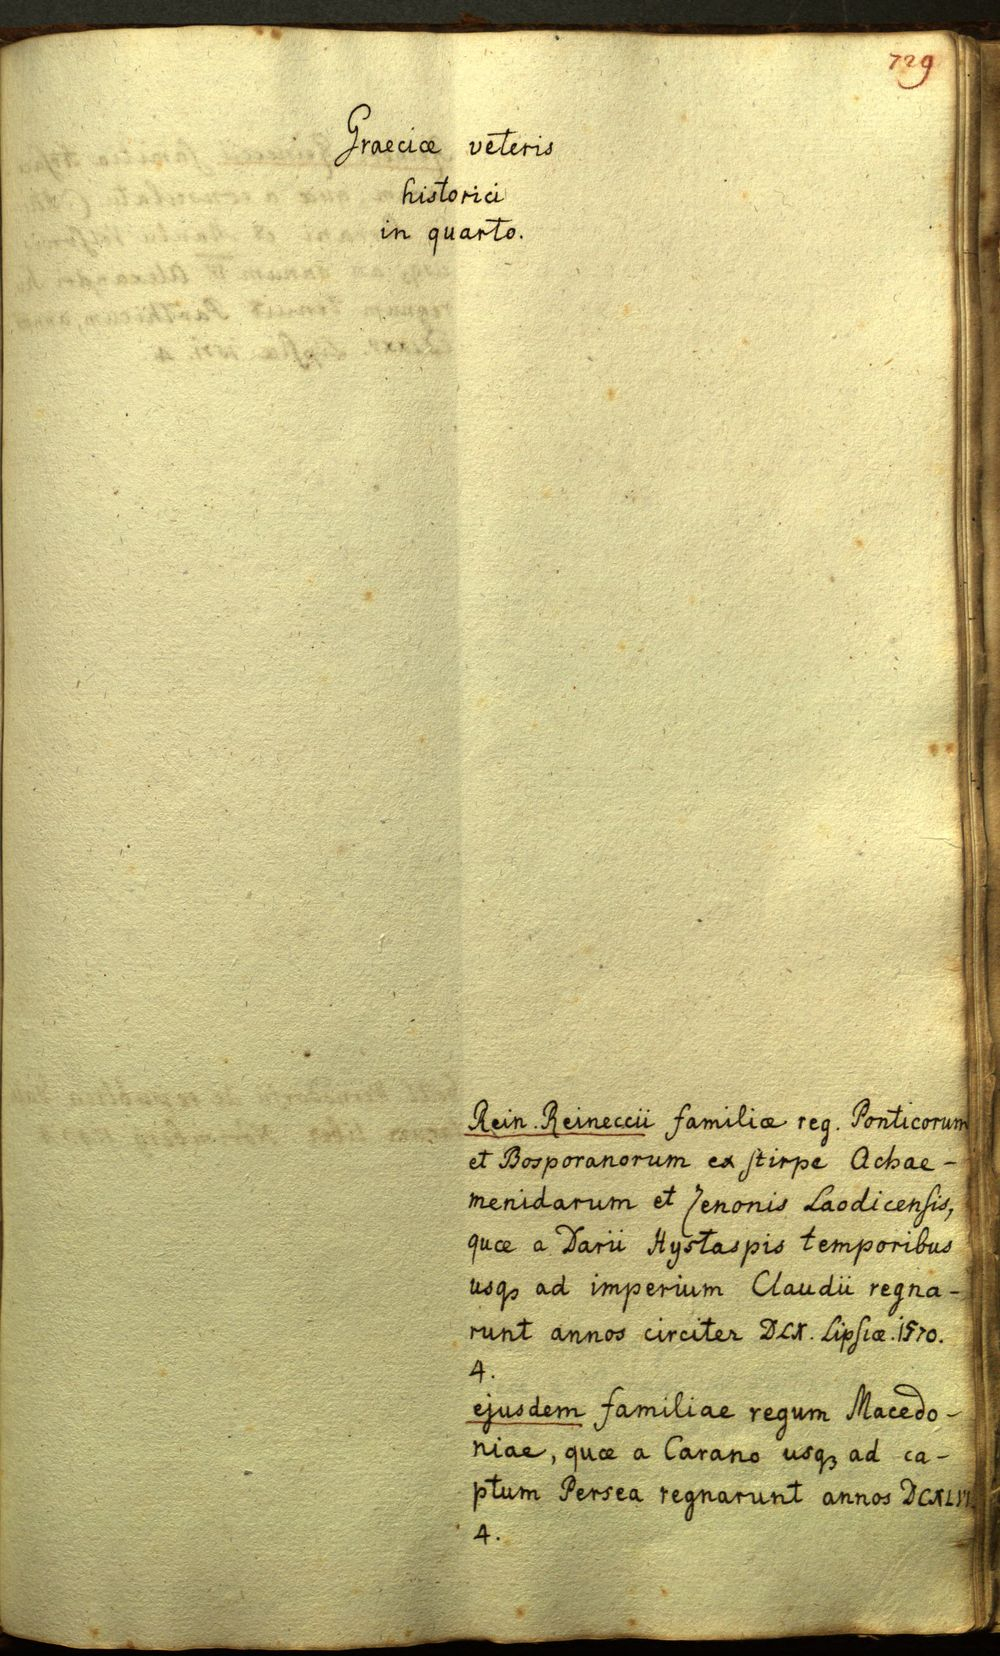 729
Graeciæ veteris
historici
in quarto.
Rein. Reineccii familiæ reg. Ponticorum
et Bosporanorum ex stirpe Achae-
menidarum et Zenonis Laodicensis,
quæ a Darii Hystaspis temporibus
usqꝫ ad imperium Claudii regna-
runt annos circiter DCX. Lipsiæ. 1570.
4.
ejusdem familiae regum Macedo-
niae, quæ a Carano usqꝫ ad ca-
ptum Persea regnarunt annos
4.